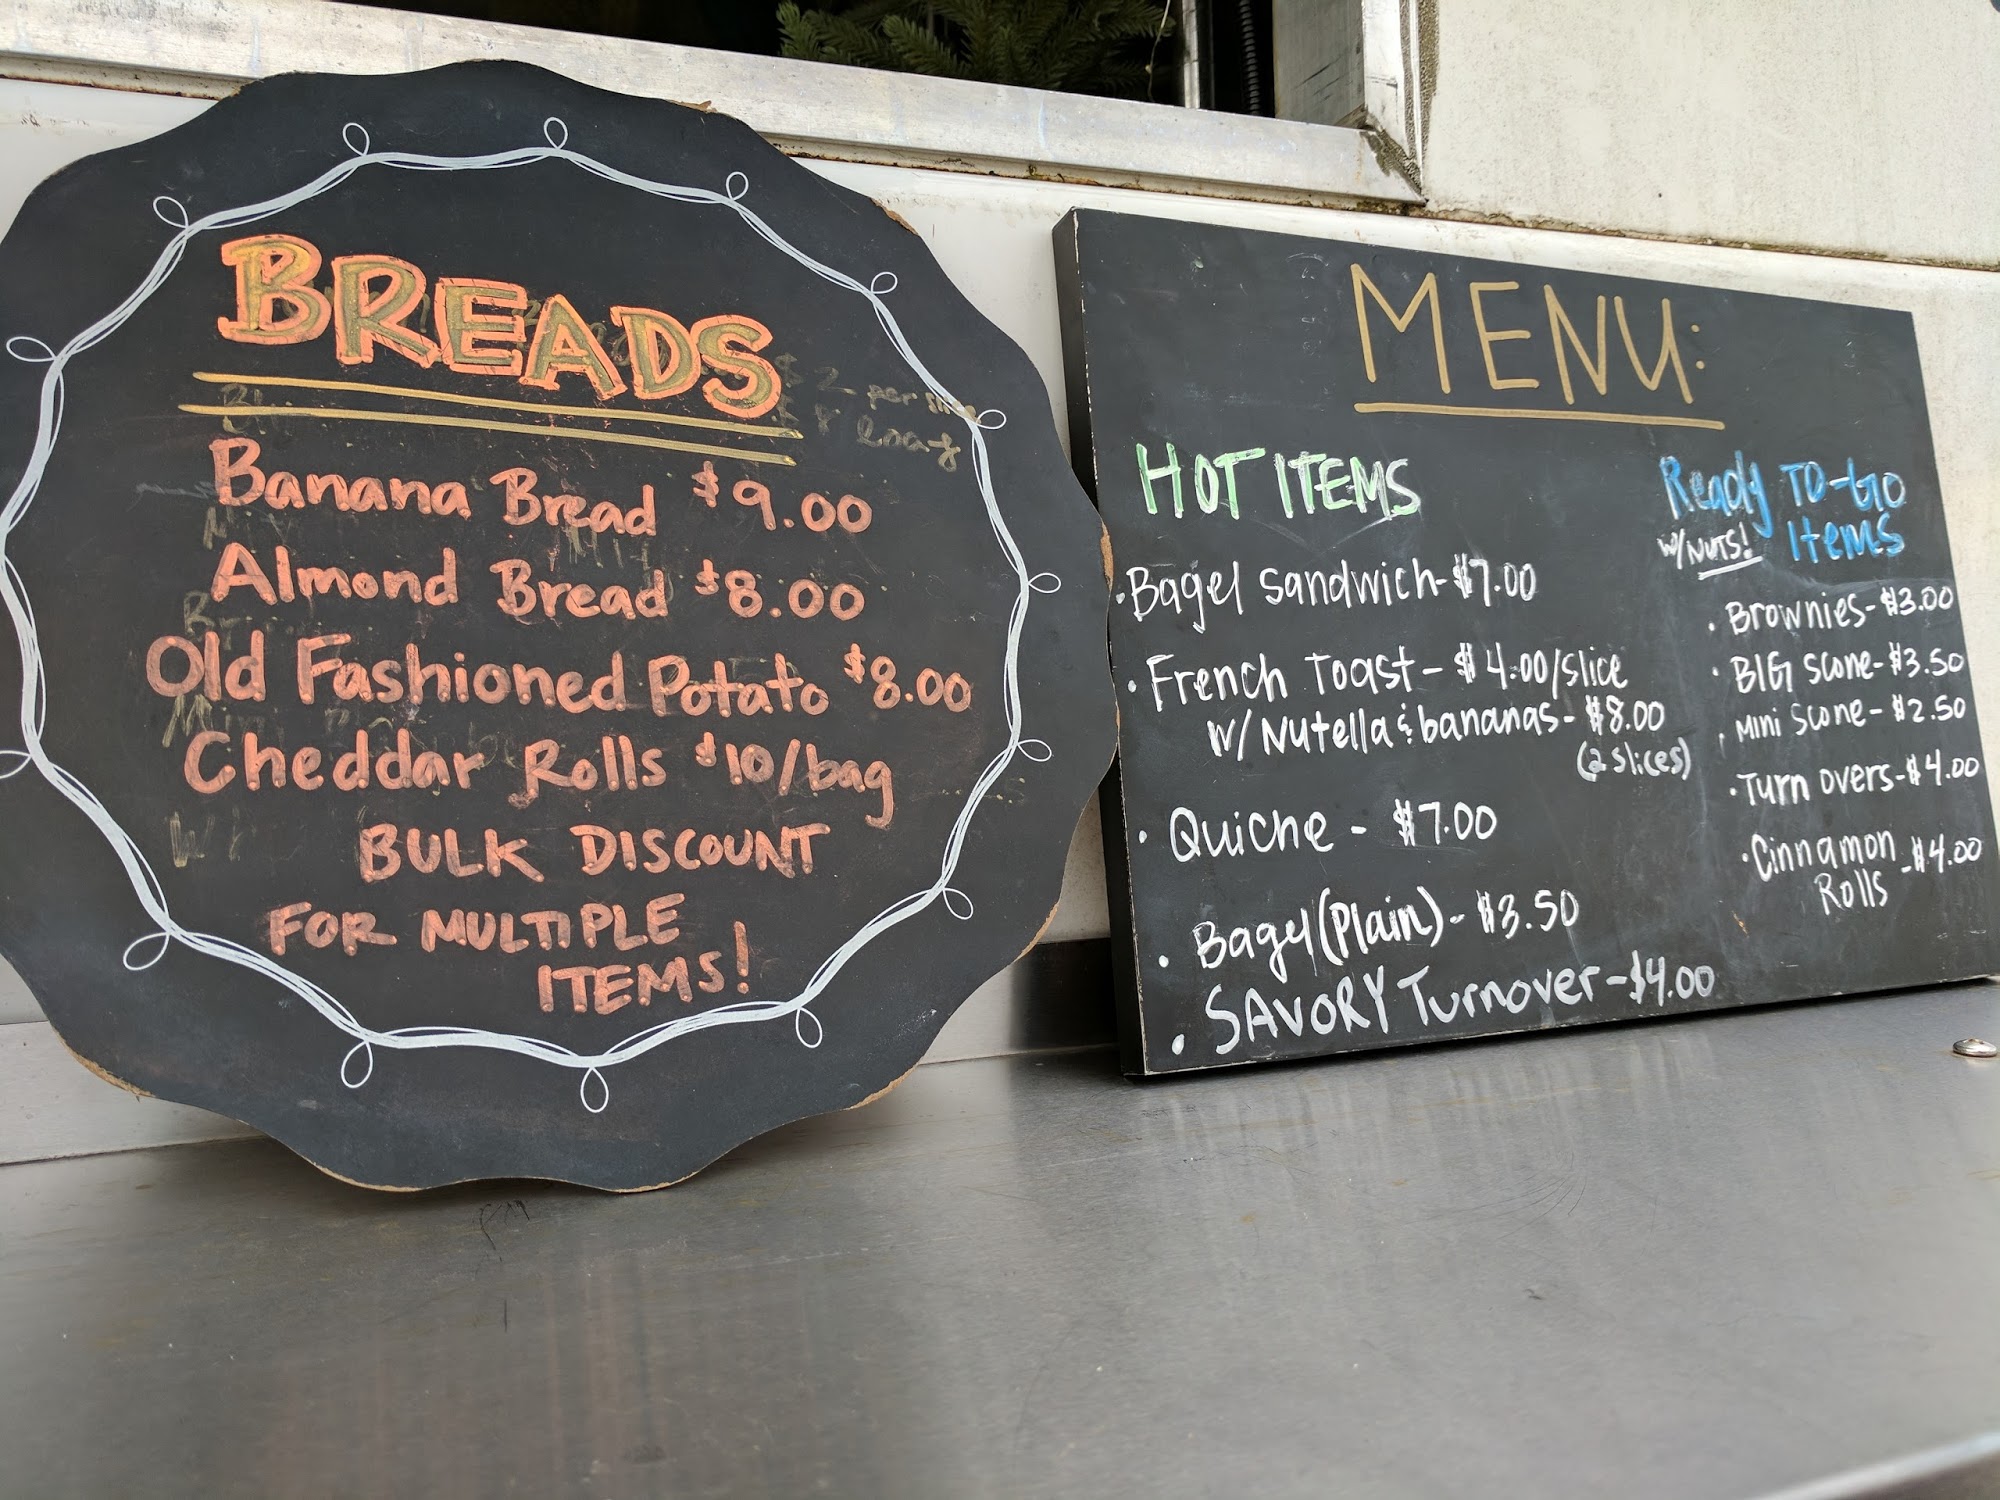 BREADS
$2 per slice
$8 loaf
Banana Bread $9.00
Almond Bread $8.00
Old Fashioned Potato $8.00
Cheddar Rolls $10/bag
BULK DISCOUNT
FOR MULTIPLE
ITEMS!
MENU:
HOT ITEMS
•Bagel Sandwich-$7.00
• French Toast - $4.00/slice
w/Nutella & bananas - $8.00
(2 slices)
• Quiche - $7.00
• Bagel (Plain) - $3.50
• SAVORY Turnover - $4.00
Ready TO-GO
Items
w/NUTS!
• Brownies - $3.00
• BIG Scone - $3.50
• MINI Scone - $2.50
• Turn overs - $4.00
•Cinnamon - $4.00
Rolls